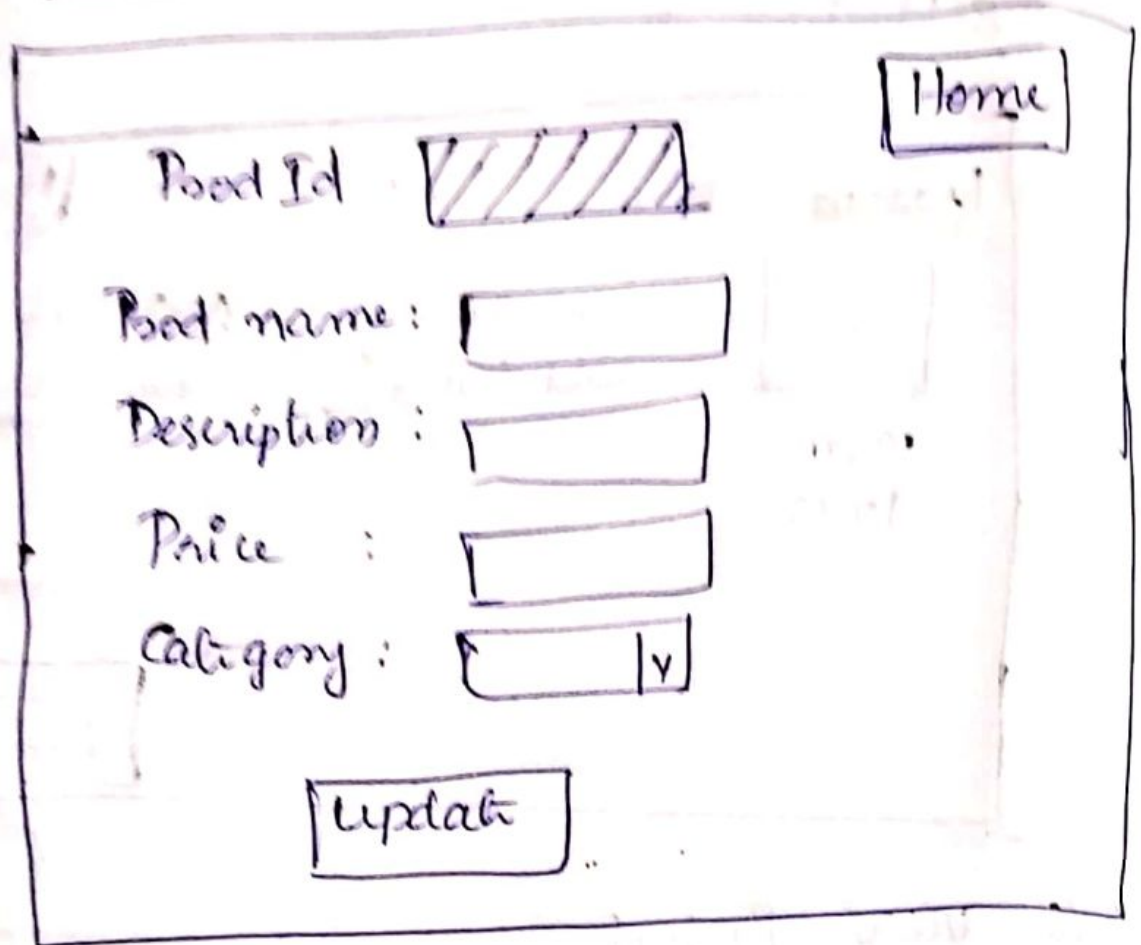 Home
Prod Id
Prod name :
Description :
Price :
Category :
Update